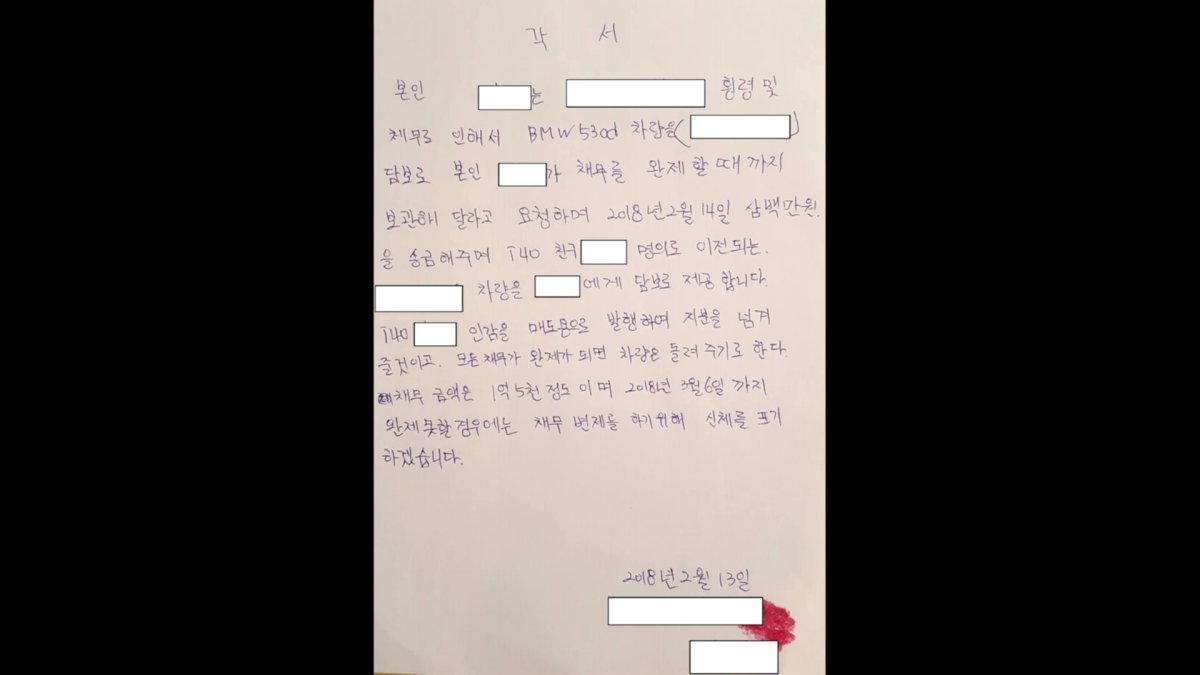 각 서
본인 는 횡령 및
채무로 인해서 BMW 530d 차량을( )
담보로 본인 가 채무를 완제 할 때 까지
보관해 달라고 요청하며 2018년 2월 14일 삼백만원.
을 송금해주며 친구 명의로 이전되는.
차량을 에게 담보로 제공합니다.
인감을 매도용으로 발행하여 지분을 넘겨
줄것이고. 모든 채무가 완제가 되면 차량은 돌려 주기로 한다.
채무 금액은 1억 5천 정도 이며 2018년 3월 6일 까지
완제 못할 경우에는 채무 변제를 하기위해 신체를 포기
하겠습니다.
2018년 2월 13일